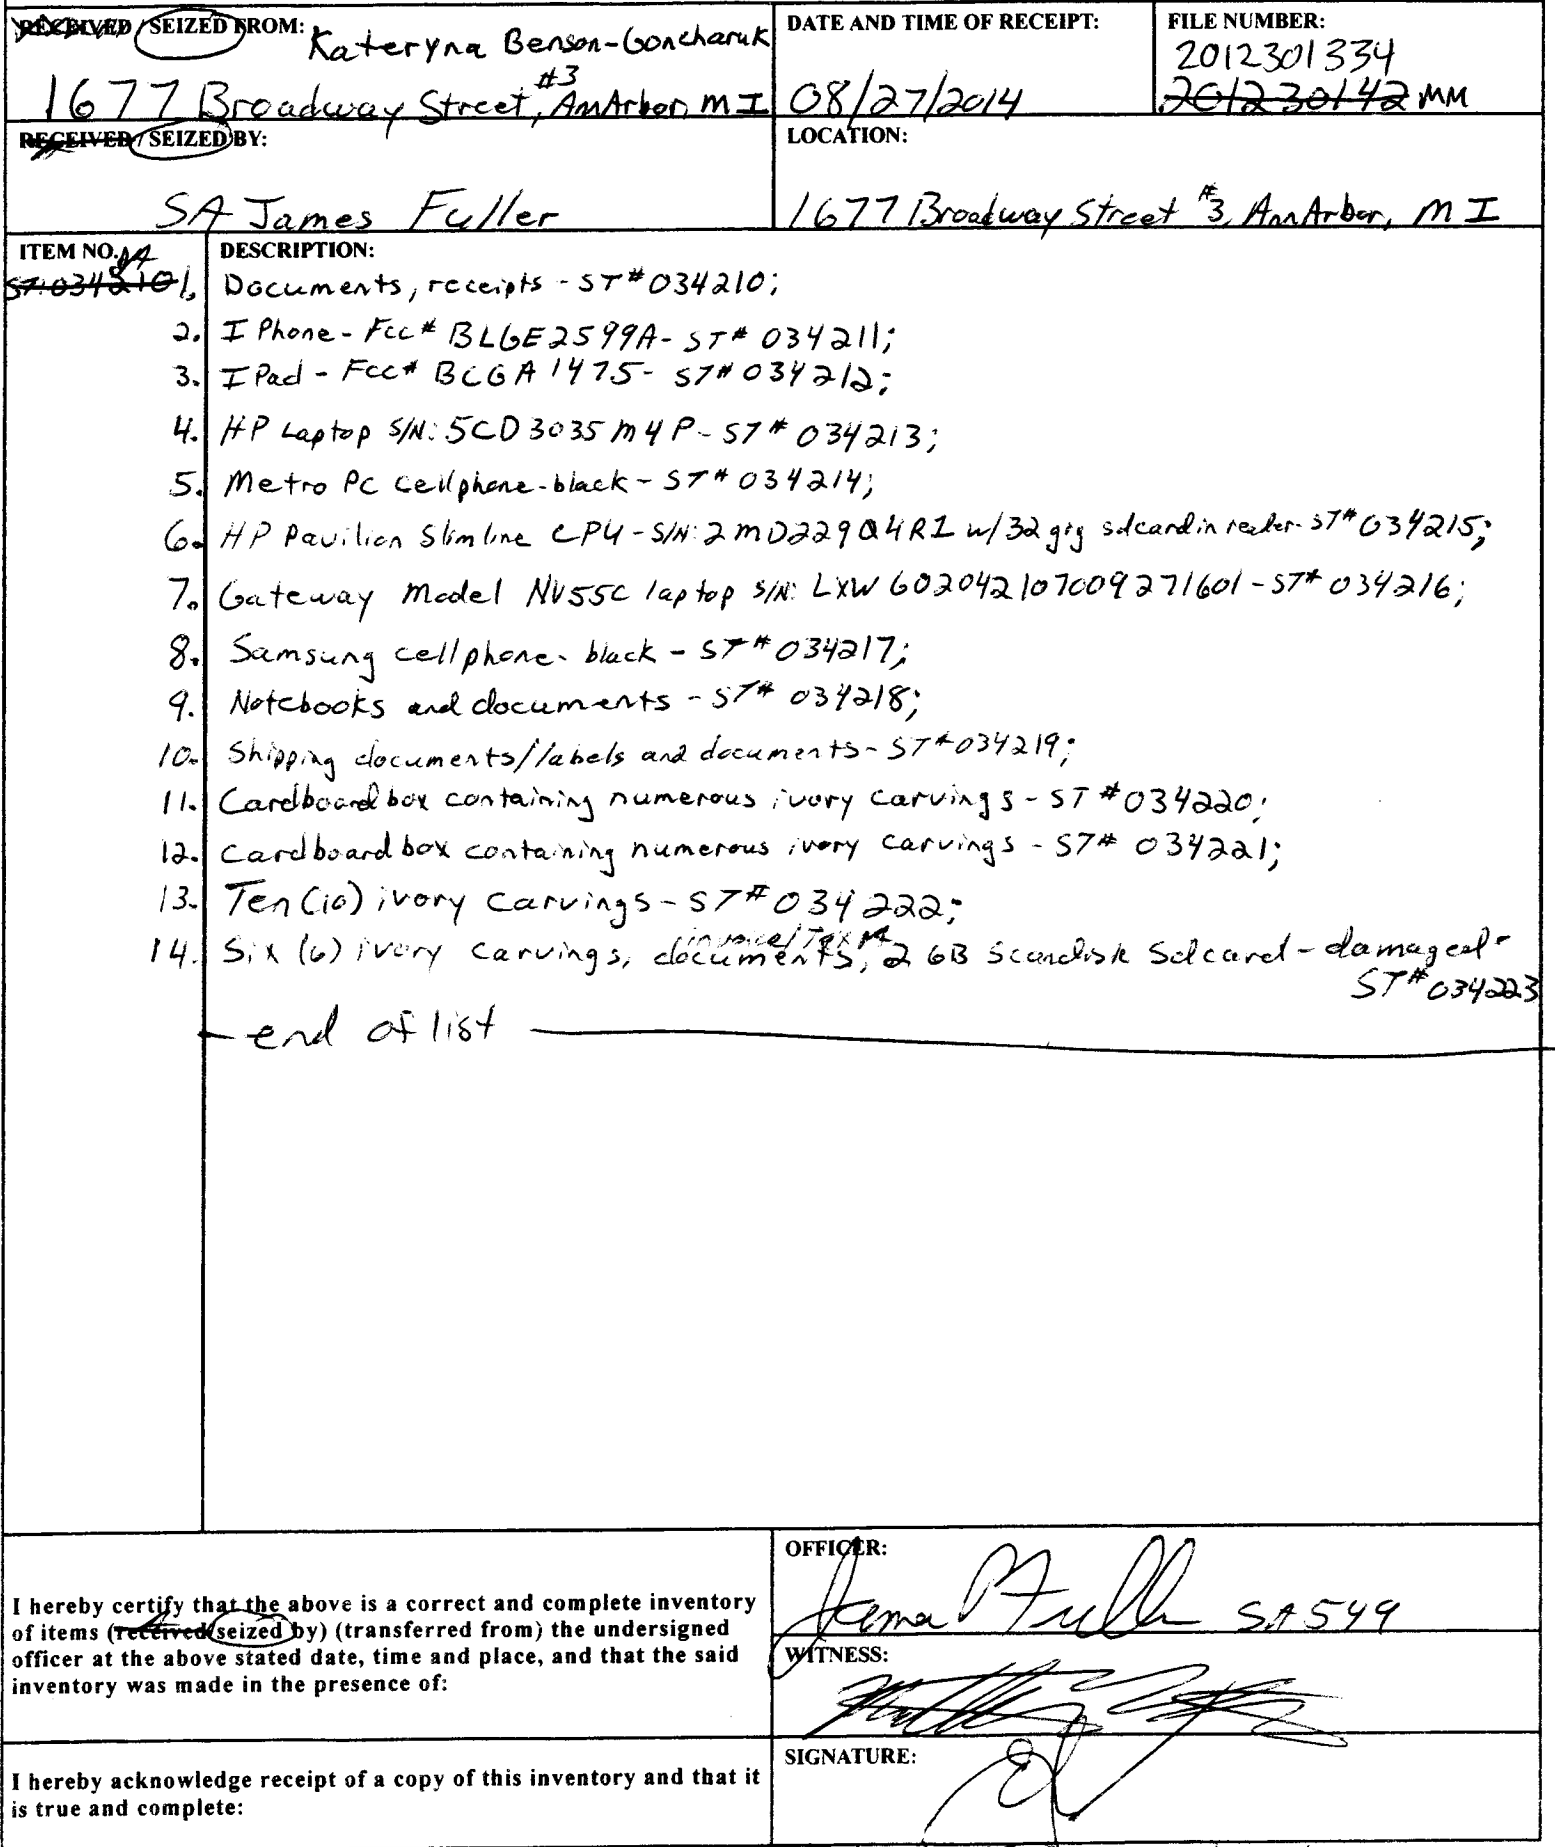 RECEIVED / SEIZED FROM: Kateryna Benson-Goncharuk
#3
1677 Broadway Street, Ann Arbor, MI
DATE AND TIME OF RECEIPT:
08/27/2014
FILE NUMBER:
2012301334
201230142 MM
RECEIVED / SEIZED BY:
SA James Fuller
LOCATION:
1677 Broadway Street #3, Ann Arbor, MI
ITEM NO. DESCRIPTION:
ST:034210 1. Documents, receipts - ST# 034210;
2. I Phone - Fcc# BLGE2599A - ST# 034211;
3. I Pad - Fcc# BCGA1475 - ST# 034212;
4. HP Laptop S/N: 5CD3035M4P - ST# 034213;
5. Metro Pc cellphone - black - ST# 034214;
6. HP Pavilion Slimline CPU - S/N: 2MD229Q4R1 w/32 gig sdcard in reader - ST# 034215;
7. Gateway Model NV55C laptop S/N: LXW602042107009271601 - ST# 034216;
8. Samsung cellphone - black - ST# 034217;
9. Notebooks and documents - ST# 034218;
10. Shipping documents//labels and documents - ST# 034219;
11. Cardboard box containing numerous ivory carvings - ST# 034220;
12. Cardboard box containing numerous ivory carvings - ST# 034221;
13. Ten (10) ivory carvings - ST# 034222;
14. Six (6) ivory carvings, documents, 2 GB Scandisk Sdcard - damaged -
ST# 034223
- end of list
I hereby certify that the above is a correct and complete inventory
of items (received/seized by) (transferred from) the undersigned
officer at the above stated date, time and place, and that the said
inventory was made in the presence of:
OFFICER:
SA 549
WITNESS:
I hereby acknowledge receipt of a copy of this inventory and that it
is true and complete:
SIGNATURE: